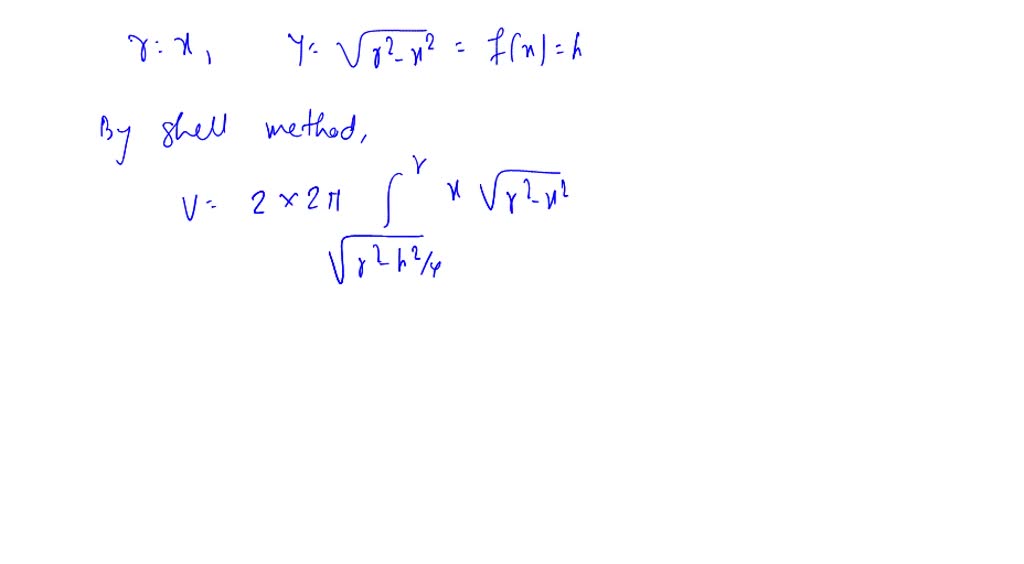 r = x, y = √(r² - x²) = f(x) = h
By shell method,
V = 2 × 2π ∫_{√(r² - h²/4)}^{r} x √(r² - x²)